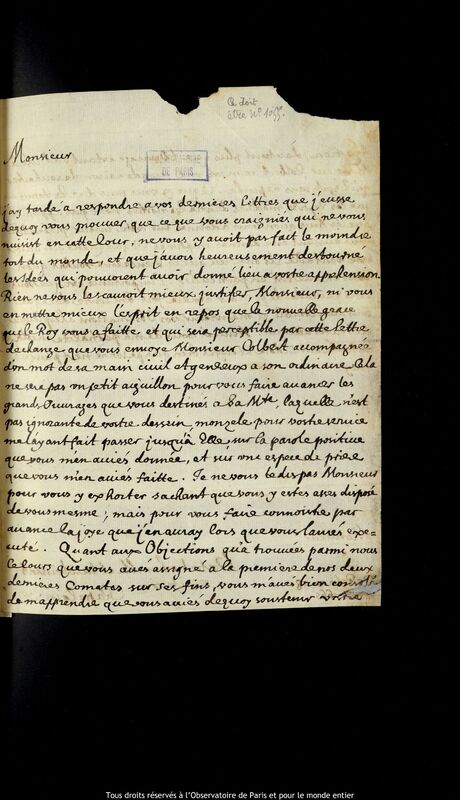 Ce doit
être N° 1055.
Monsieur
DE PARIS
j'ay tardé a respondre a vos dernieres lettres que j'eusse
dequoy vous prouver que ce que vous craigniés qui ne vous
nuisist en cette Cour, ne vous y avoit pas fait le moindre
tort du monde, et que j'avois heureusement destourné
les Idées qui pouvoient avoir donné lieu a vostre apprehension.
Rien ne vous la sauroit mieux justifier, Monsieur, ni vous
en mettre mieux l'esprit en repos que la nouvelle grace
que le Roy vous a faitte et qui sera perceptible par cette lettre
de change que vous envoye Monsieur Colbert accompagnée
d'un mot de sa main civil et genereux a son ordinaire Cela
ne sera pas un petit aiguillon pour vous faire avancer les
grands Ouvrages que vous destinés a Sa Mté, laquelle n'est
pas ignorante de vostre dessein, mon zele pour vostre service
me layant fait passer jusqu'a Elle, sur la parole positive
que vous m'en aviés donnée, et sur une espece de priere
que vous m'en aviés faitte. Je ne vous le dis pas Monsieur
pour vous y exhorter sachant que vous y estes assés disposé
de vous mesme; mais pour vous faire connoistre par
avance la joye que j'en auray lors que vous l'aurés exe=
cuté. Quant aux Objections qu'a trouvées parmi nous
le cours que vous avés assigné a la premiere de nos deux
dernieres Cometes sur ses fins, vous m'avés bien consolé
de m'apprendre que vous aviés dequoy soustenir vostre
Tous droits réservés à l'Observatoire de Paris et pour le monde entier